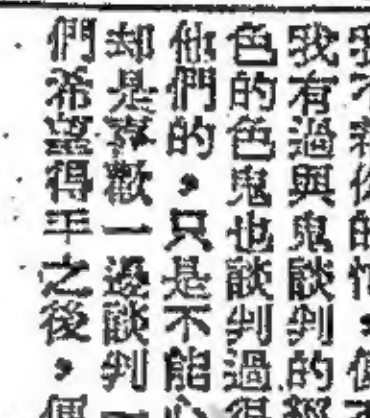 我有過與鬼談判的
色的色鬼也談判過
他們的。只是不能
却是喜歡一邊談判
們希望得手之後，